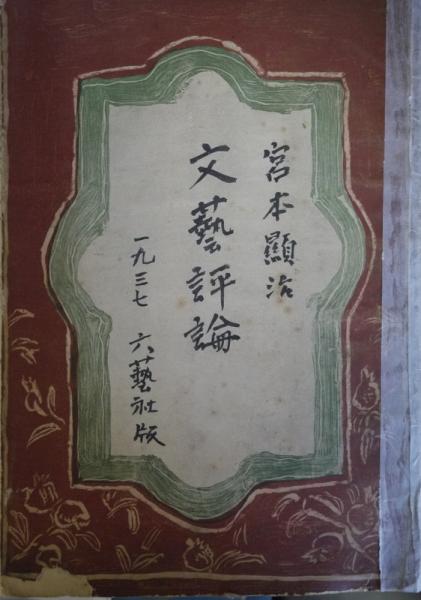 宮本顯治
文藝評論
一九三七 六藝社版